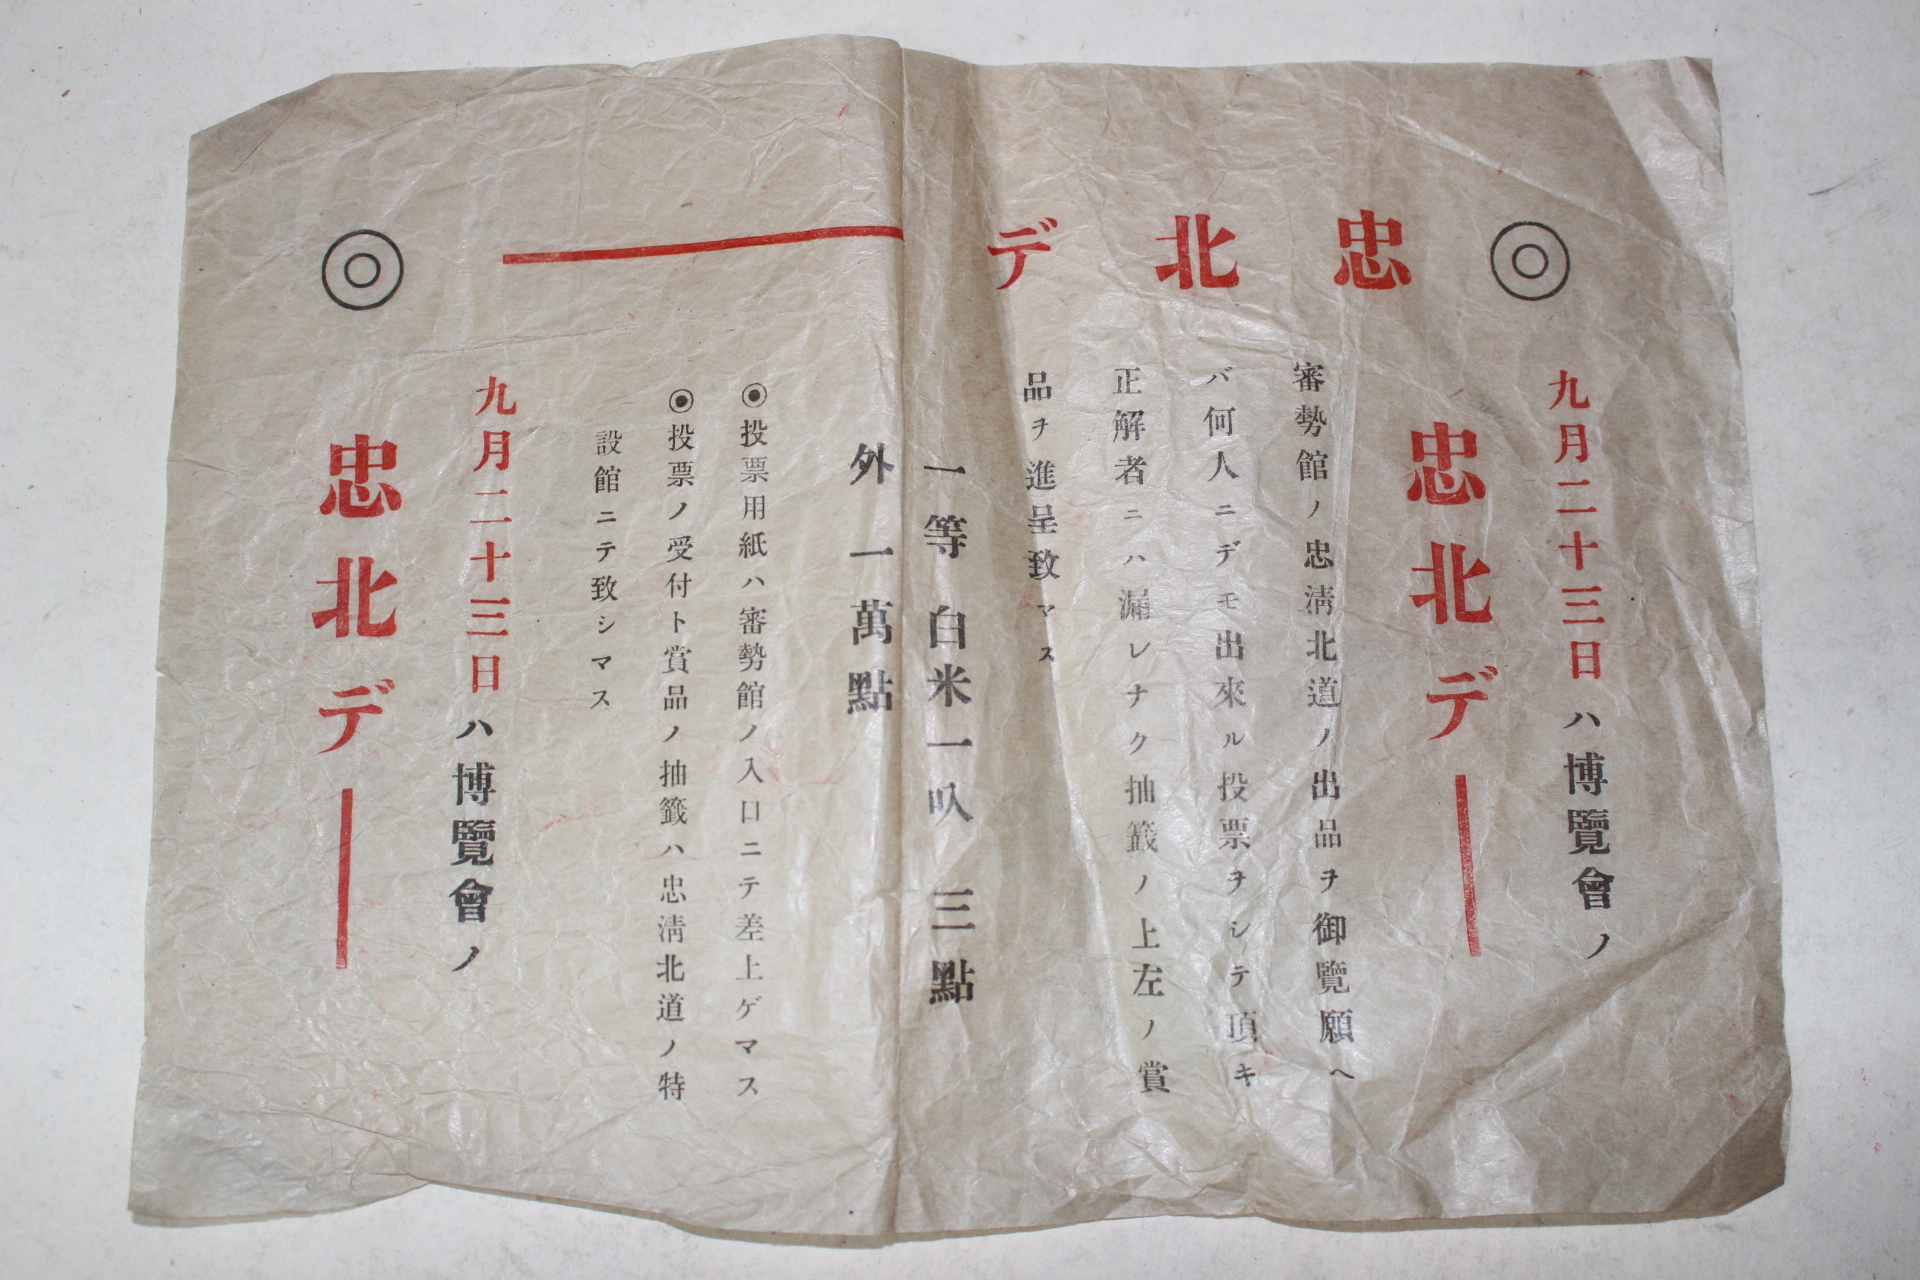 ◎忠北デー◎
九月二十三日ハ博覽會ノ
忠北デー
審勢館ノ忠淸北道ノ出品ヲ御覽願ヘ
バ何人ニデモ出來ル投票ヲシテ頂キ
正解者ニハ漏レナク抽籤ノ上左ノ賞
品ヲ進呈致マス
一等 白米一叺 三點
外一萬點
◉投票用紙ハ審勢館ノ入口ニテ差上ゲマス
◉投票ノ受付ト賞品ノ抽籤ハ忠淸北道ノ特
設館ニテ致シマス
九月二十三日ハ博覽會ノ
忠北デー